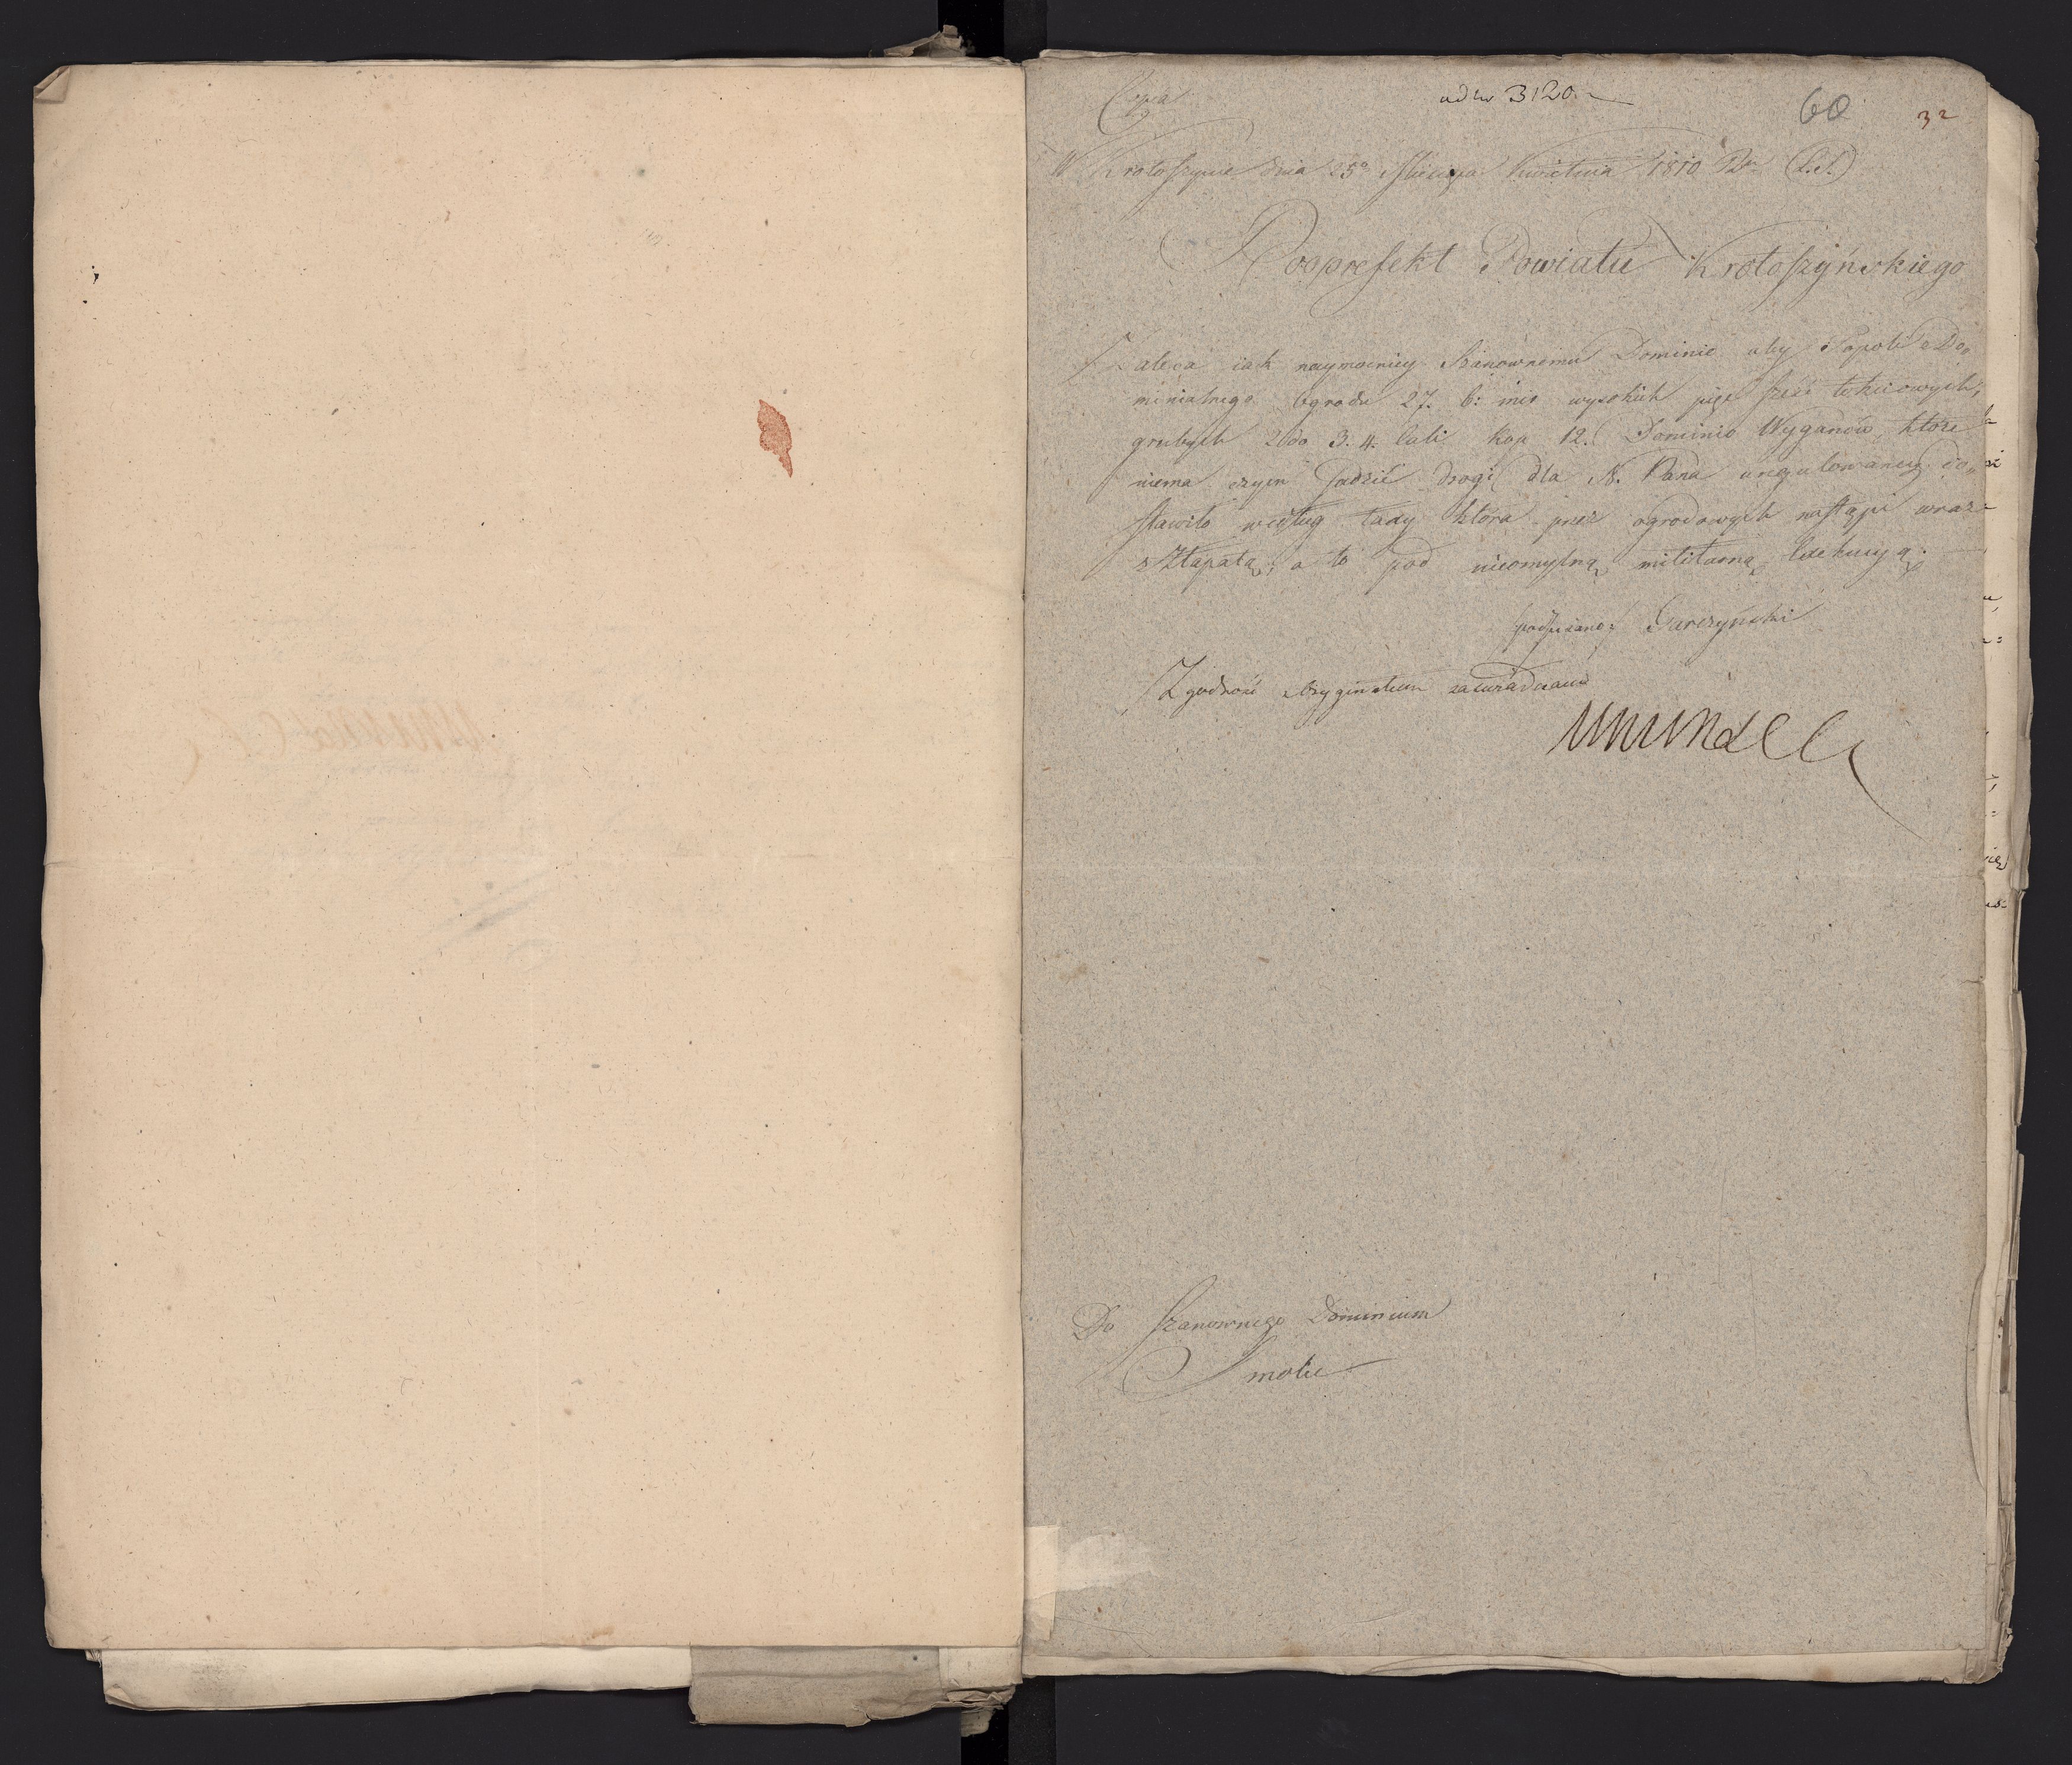 Copia
ad Nr 3120.
60
32
W Krotoszynie dnia 25º Miesiąca Kwietnia 1810 R. (L.S.)
Podprefekt Powiatu Krotoszyńskiego
Zaleca iak naymocniey Szanownemu Dominio aby Topoli z Do=
minialnego Ogrodu 27. b: mca wysokich pięć sześć łokciowych,
grubych 2 do 3. 4. Cali kop 12. Dominio Wyganów, które
niema czym sadzić drogi dla N. Pana uregulowaney do=
stawiło według taxy która przez ogrodowych nastąpi wraz
z Zapłatą; a to pod nieomylną militarną Exekucyą. —
podpisano: Garczyński
Zgodność z Oryginałem zaświadczam
Do Szanownego Dominium
Smolic